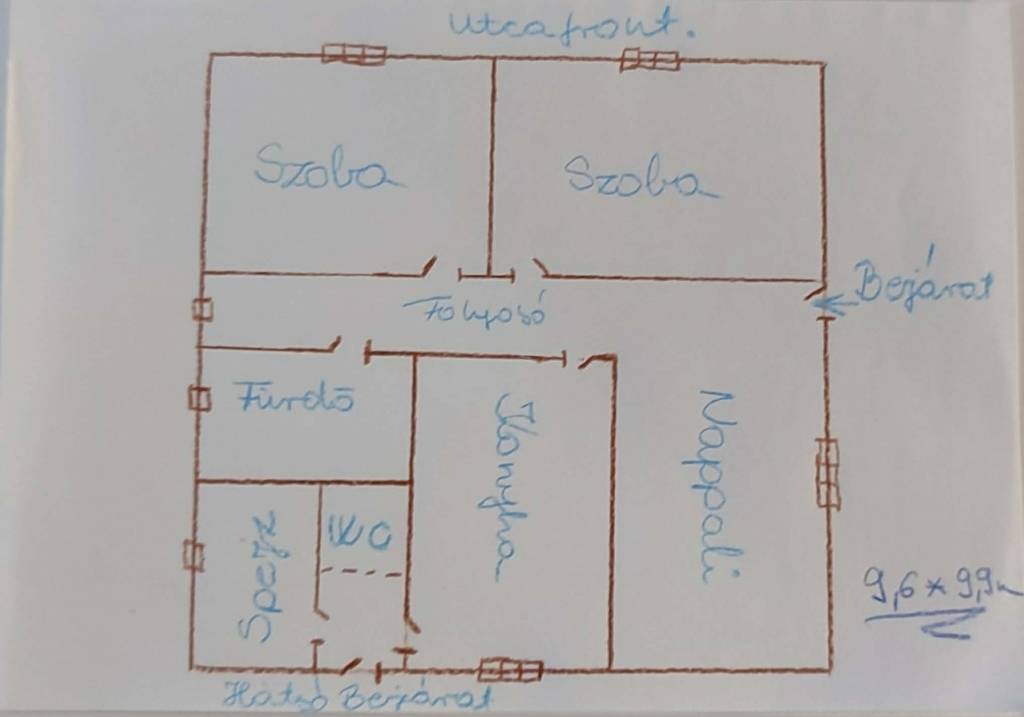 utcafront.
Szoba
Szoba
Bejárat
Folyosó
Fürdő
Konyha
Nappali
Spejz
WC
9,6 * 9,9m
Hátsó Bejárat